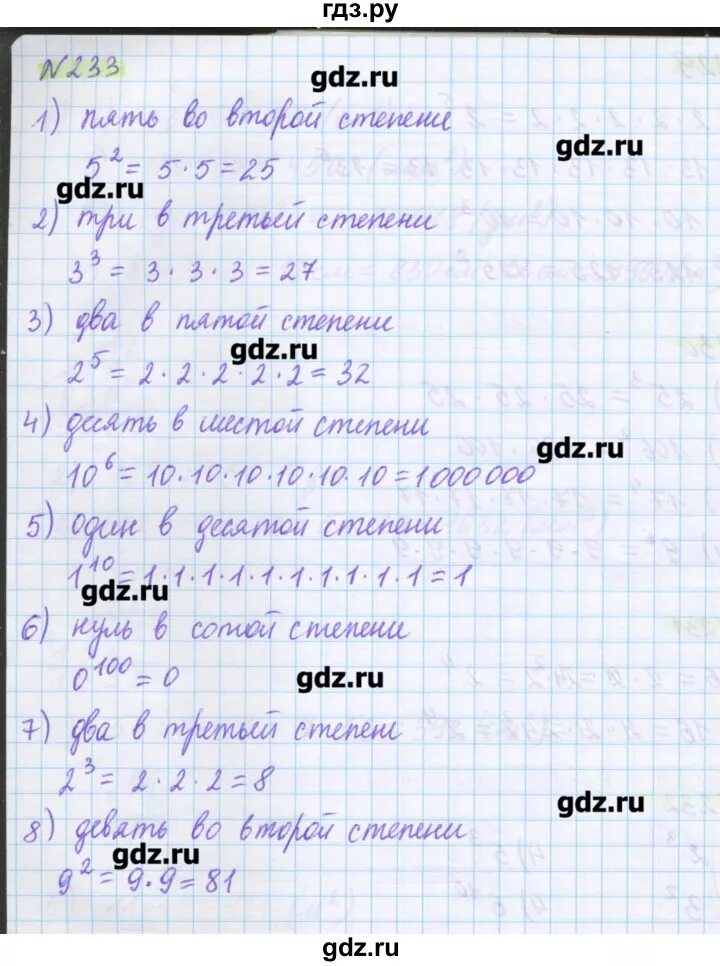 гдз.ру
N233
gdz.ru
1) пять во второй степени
gdz.ru
5² = 5 · 5 = 25
gdz.ru
2) три в третьей степени
3³ = 3 · 3 · 3 = 27
3) два в пятой степени
gdz.ru
2⁵ = 2 · 2 · 2 · 2 · 2 = 32
4) десять в шестой степени
gdz.ru
10⁶ = 10 · 10 · 10 · 10 · 10 · 10 = 1000000
5) один в десятой степени
1¹⁰ = 1 · 1 · 1 · 1 · 1 · 1 · 1 · 1 · 1 · 1 = 1
gdz.ru
6) нуль в сотой степени
0¹⁰⁰ = 0
gdz.ru
7) два в третьей степени
2³ = 2 · 2 · 2 = 8
gdz.ru
8) девять во второй степени
gdz.ru
9² = 9 · 9 = 81
gdz.ru